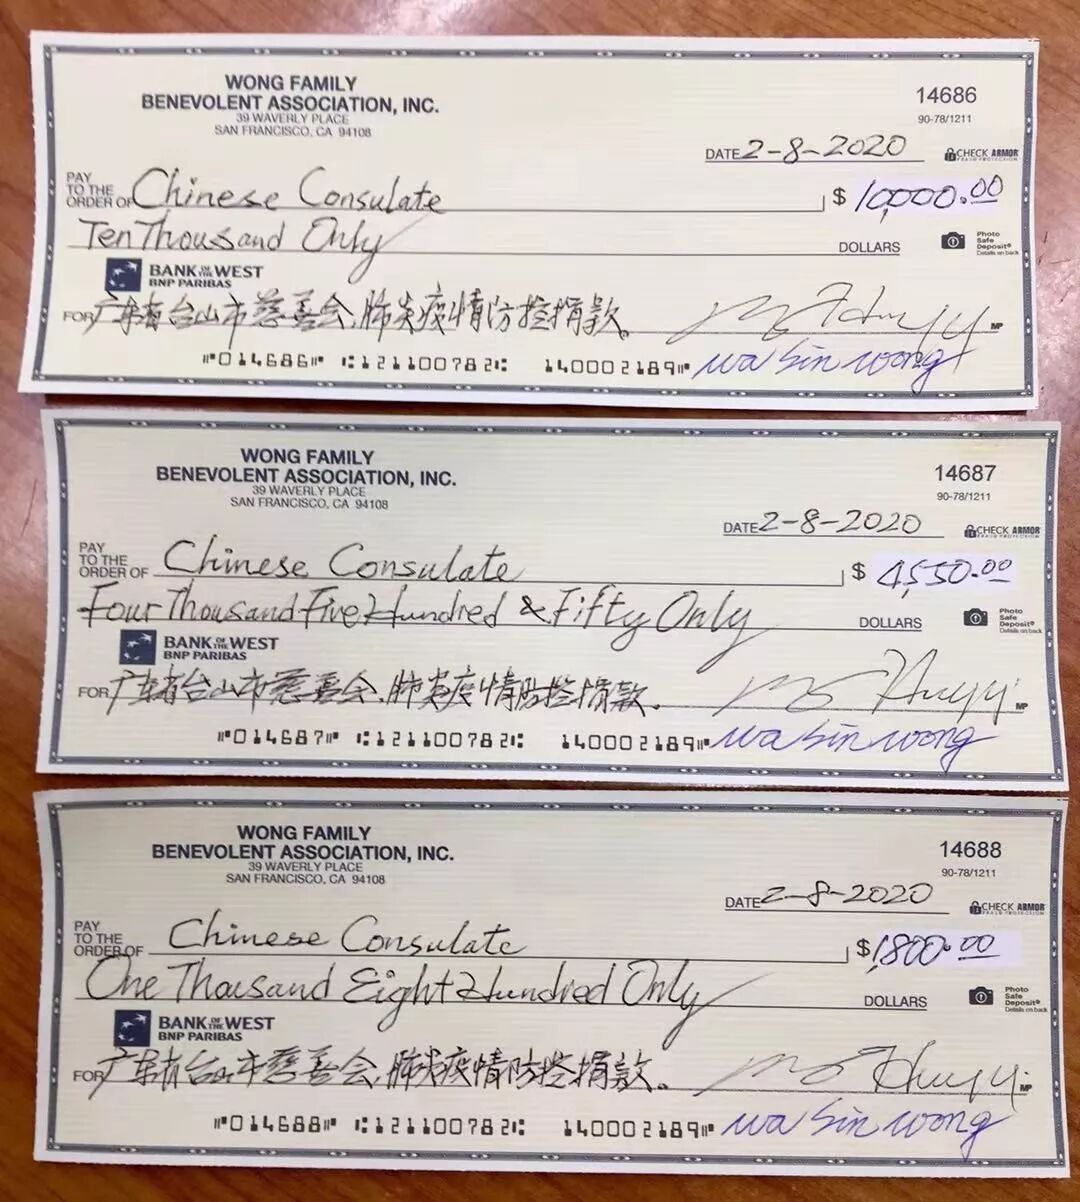 WONG FAMILY
BENEVOLENT ASSOCIATION, INC.
39 WAVERLY PLACE
SAN FRANCISCO, CA 94108
14686
90-78/1211
DATE 2-8-2020
CHECK ARMOR
FRAUD PROTECTION
PAY TO THE ORDER OF Chinese Consulate $ 10,000.00
Ten Thousand Only DOLLARS
Photo Safe Deposit® Details on back
BANK OF THE WEST
BNP PARIBAS
FOR 广东省台山市慈善会,肺炎疫情防控捐款。
MP
⑈014686⑈ ⑆121100782⑆ 140002189⑈ wa sin wong
WONG FAMILY
BENEVOLENT ASSOCIATION, INC.
39 WAVERLY PLACE
SAN FRANCISCO, CA 94108
14687
90-78/1211
DATE 2-8-2020
CHECK ARMOR
FRAUD PROTECTION
PAY TO THE ORDER OF Chinese Consulate $ 4,550.00
Four Thousand Five Hundred & Fifty Only DOLLARS
Photo Safe Deposit® Details on back
BANK OF THE WEST
BNP PARIBAS
FOR 广东省台山市慈善会,肺炎疫情防控捐款。
MP
⑈014687⑈ ⑆121100782⑆ 140002189⑈ wa sin wong
WONG FAMILY
BENEVOLENT ASSOCIATION, INC.
39 WAVERLY PLACE
SAN FRANCISCO, CA 94108
14688
90-78/1211
DATE 2-8-2020
CHECK ARMOR
FRAUD PROTECTION
PAY TO THE ORDER OF Chinese Consulate $ 1,800.00
One Thousand Eight Hundred Only DOLLARS
Photo Safe Deposit® Details on back
BANK OF THE WEST
BNP PARIBAS
FOR 广东省台山市慈善会,肺炎疫情防控捐款。
MP
⑈014688⑈ ⑆121100782⑆ 140002189⑈ wa sin wong